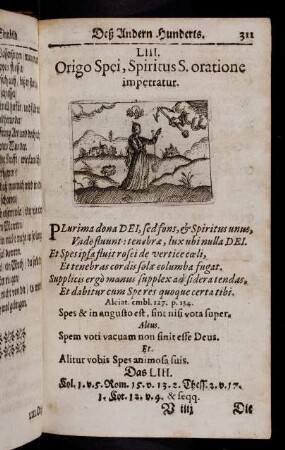 Deß Andern Hunderts. 311
LIII.
Origo Spei, Spiritus S. oratione
impetratur.
PLurima dona DEI, sed fons, & Spiritus unus,
Unde fluunt: tenebræ, lux ubi nulla DEI.
Et Spes ipsa fluit rosei de vertice cœli,
Et tenebras cordis sola columba fugat.
Supplicis ergò manus supplex ad sidera tendas,
Et dabitur cum Spe res quoque certa tibi.
Alciat. embl. 127. p. 134.
Spes & in angusto est, sint nisi vota super.
Alius.
Spem voti vacuam non sinit esse Deus.
Et.
Alitur vobis Spes animosa suis.
Das LIII.
Kol. 1. v. 5. Rom. 15. v. 13. 2. Thess. 2. v. 17.
1. Kor. 12. v. 9. & seqq.
V iiij Die